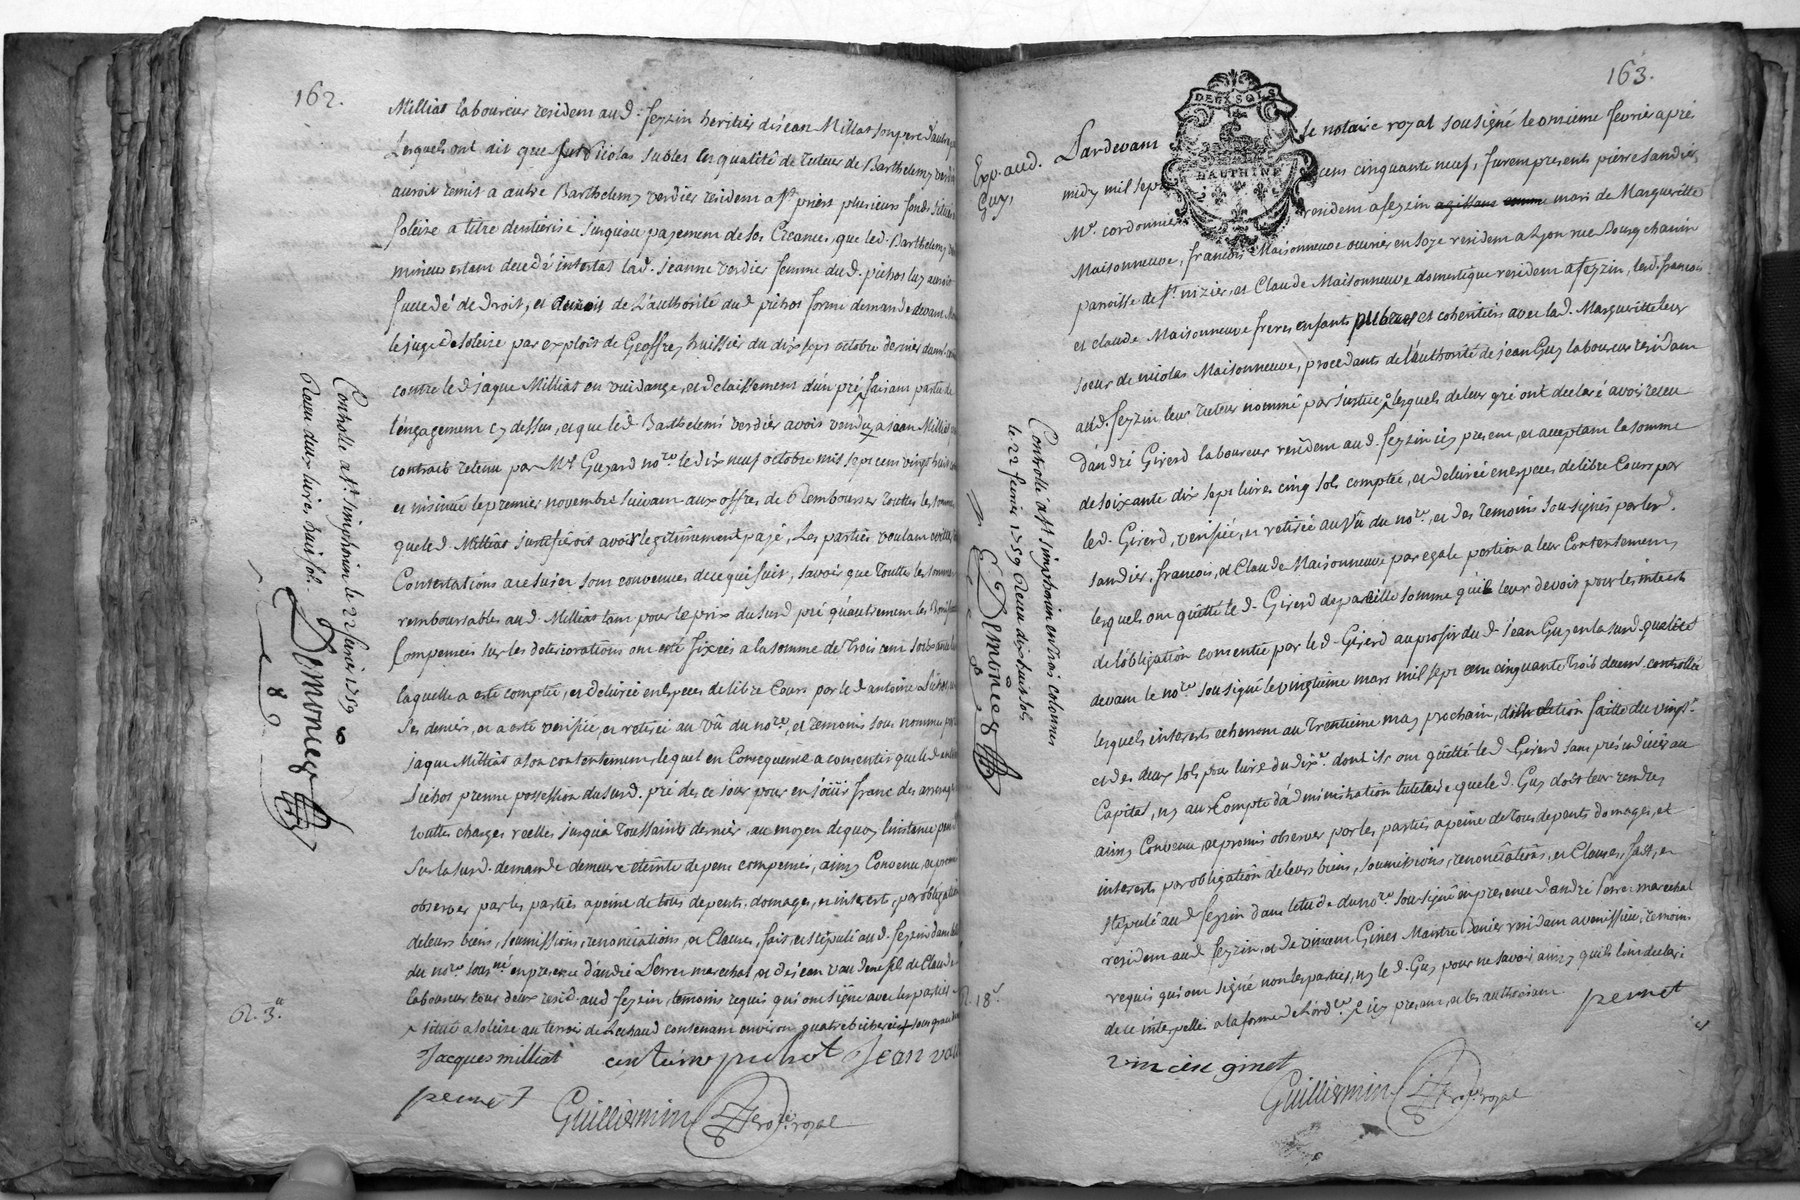 162.
Milliat laboureur residem au d. feyzin heritier de jean Millat son pere d'autre
Lesquels ont dit que Nicolas Subles en qualité de tuteur de Barthelemy verdier
auroit remis a autre Barthelemy verdier residem a St. priest plusieurs fonds situés
soleize a titre dentierisé jusquau payement de ses Creances, que led. Barthelemy
mineur estam decedé intestat lad. jeanne verdier femme du d. pichot luy auroit
succedé de droit, et auroit de L'authorité dud pichot formé demande devam
le juge de soleize par exploit de Geoffrey huissier du dix sept octobre dernier
contre le d jaque Milliat en vuidange, et delaissement d'un pré faisam partie de
l'engagement cy dessus, et que led. Barthelemi verdier avoit vendu a jean Milliat
contract retenu par Me Guyard nore. le dix neuf octobre mil sept cent vingt huit
et insinué le premier novembre suivam aux offres de Rembourser touttes les sommes
que le d. Milliat justifieroit avoir legitimement payé, Les parties voulam eviter
Contestations a ce sujet sont convenues de ce qui suit, savoir que touttes les sommes
remboursables au d. Milliat tam pour le prix du susd pré qu'autrement les
Compensées sur les deteriorations ont esté fixées a la somme de trois cent soixante
laquelle a esté comptée, et delivrée en Especes de libre Cours par le d antoine Pichot
ses deniers, et a esté verifiée, et retirée au Vû du nore, et temoins sous nommés par
jaque Milliat a son contentement, lequel en Consequence a consenti que le d antoine
Pichot prenne possession du susd. pré des ce jour pour en jouir franc des arrerages
touttes charges reelles jusqua Toussaints dernier, au moyen de quoy linstance
sur la susd. demande demeure eteinte depens compensés, ainsy Convenu, et promis
observer par les parties a peine de tous depents, domages, et interest, par obligation
de leurs biens, soumissions, renonciations, et Clauses, fait, et stipulé au d. feyzin dans
du nore. sousné. en presence d'andré Perret marechal, et de jean vaudene fil de Claude
laboureur tous deux resid. aud feyzin, temoins requis qui ont signé avec les parties
situé a soleize au terroir de Lachaud contenam environ quatre bicherées
Jacques milliat antoine pichot Jean vau
perret Guilliermin nore. royal
Controllé a St. simphorien le 22 fevrier 1759
Reçu deux livres huit sols.
Demonier
R. 3.tt
163.
DEUX SOLS
DAUPHINE
Exp. aud. Guy
Pardevam le notaire royal sousigné le onzieme fevrier apré
midy mil sept cens cinquante neuf, furem presents pierre sandier
Me. cordonnier residem a feyzin mari de Margueritte
Maisonneuve, francois Maisonneuve ouvrier en soye residem a Lyon rue Bourg chanin
paroisse de St. nizier, et Claude Maisonneuve domestique residem a feyzin, lesd. francois
et claude Maisonneuve freres enfants puberes et coheritiers avec lad. Margueritte leur
soeur de nicolas Maisonneuve, procedants de l'authorité de jean Guy laboureur residam
aud. feyzin leur tuteur nommé par justice lesquels de leur gré ont declaré avoir receu
d'andré Girerd laboureur residem au d. feyzin icy presem, et acceptam la somme
de soixante dix sept livres cinq sols comptée, et delivrée en espece, de libre Cours par
le d. Girerd, verifiée, et retirée au Vû du nore, et des temoins sousignés par led.
sandier, francois, et Claude Maisonneuve par egale portion a leur Contentement,
lesquels ont quitté le d. Girerd de pareille somme quil leur devoit pour les interets
de lobligation consentie par le d. Girerd au profit du d. jean Guy en la susd. qualité
devam le nore. sousigné le vingtieme mars mil sept cens cinquante trois duem. controllée
lesquels interests echerront au trentieme may prochain, distraction faitte du vingte.
et des deux sols pour livre du dixe. dont ils ont quitté le d Girerd sans prejudicier au
Capital, ny au Compte d'administration tutelaire que le d. Guy doit leur rendre,
ainsy Convenu, et promis observer par les parties a peine de tous depents domages, et
interests par obligation de leurs biens, soumissions, renonciations, et Clauses, fait, et
stipulé au d. feyzin dans letude du nore. sousigné en presence d'andré Perret marechal
residem au d. feyzin, et de vincent Ginet Maistre residam a venissieu, temoins
requis qui ont signé non les parties, ny le d. Guy pour ne savoir ainsy quils lont declaré
de ce interpellés a la forme de Lordce. icy presem, et les authorisam perret
vincen ginet
Guilliermin nore. royal
Controllé a St. simphorien en trois colomnes
le 22 fevrier 1759 Receu dix huit sols.
Demonier
R. 18s